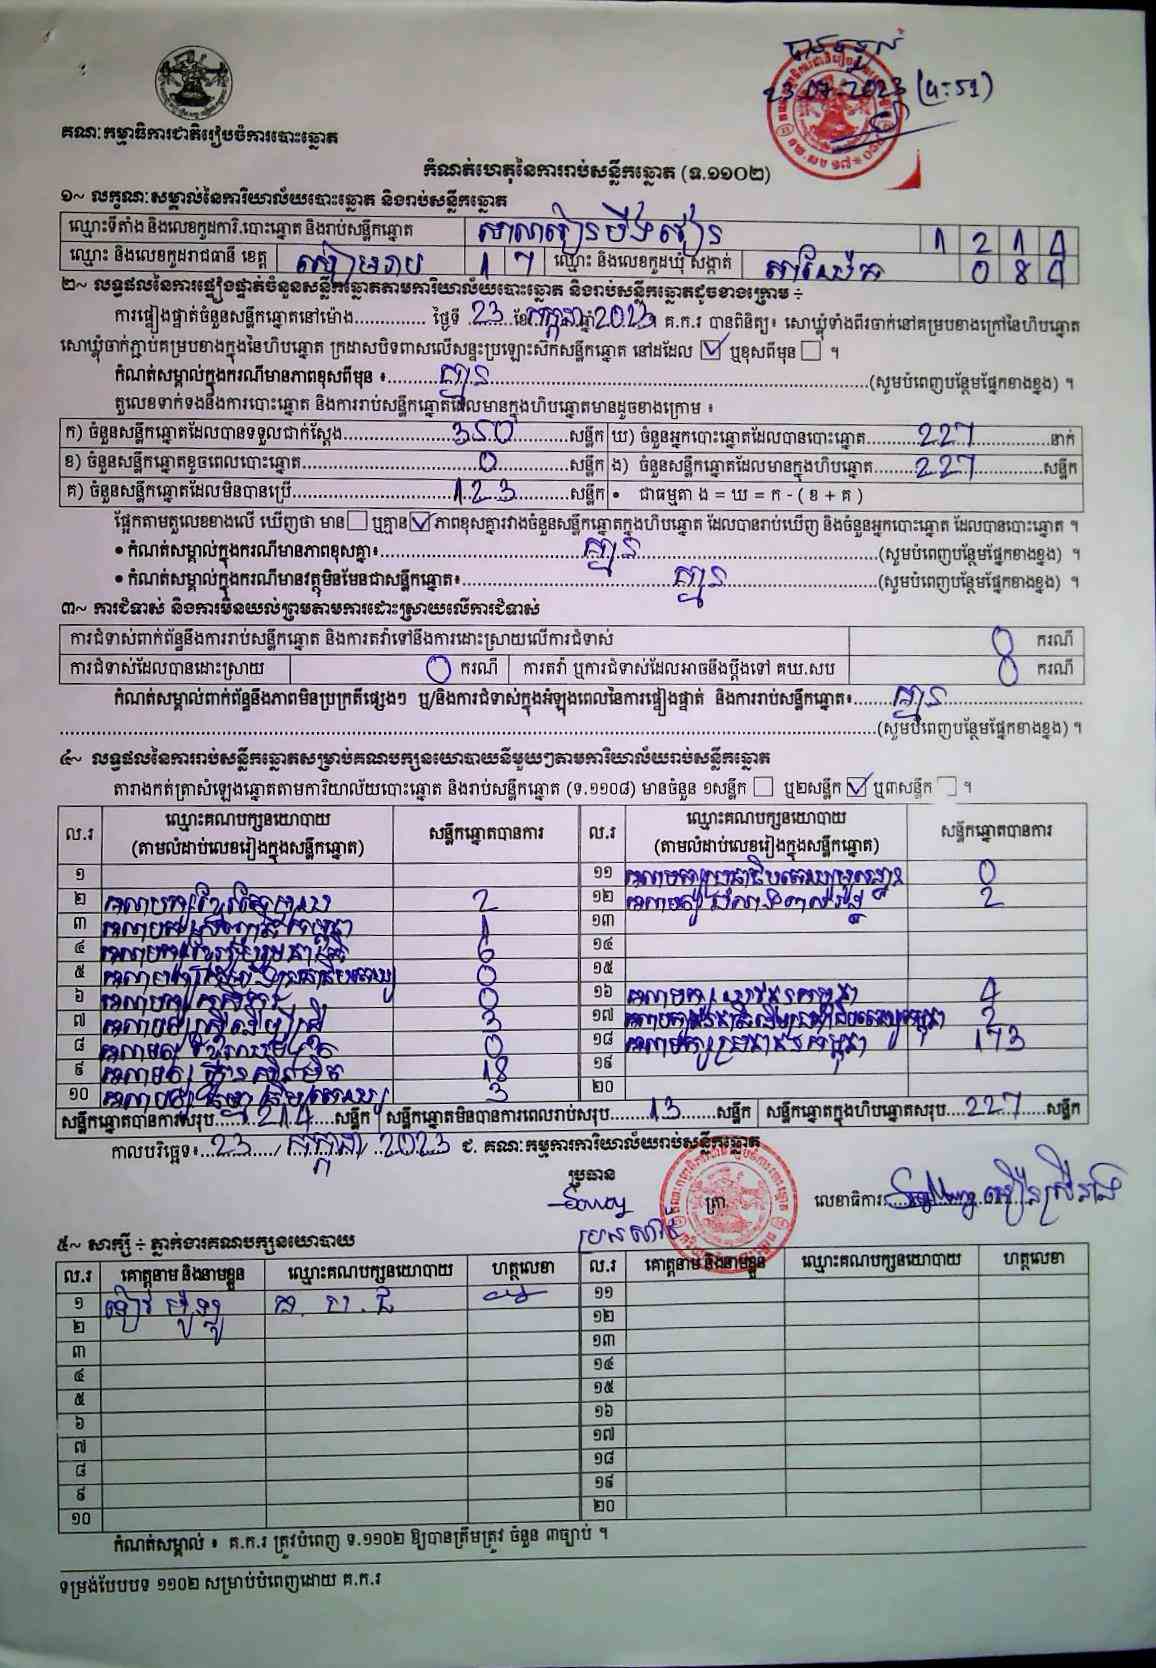 23.07.2023 (4:51)
គណៈកម្មាធិការជាតិរៀបចំការបោះឆ្នោត
កំណត់ហេតុនៃការរាប់សន្លឹកឆ្នោត (ទ.១១០២)
១~ លក្ខណៈសម្គាល់នៃការិយាល័យបោះឆ្នោត និងរាប់សន្លឹកឆ្នោត
ឈ្មោះទីតាំង និងលេខកូដការិ.បោះឆ្នោត និងរាប់សន្លឹកឆ្នោត សាលារៀន
ឈ្មោះ និងលេខកូដរាជធានី ខេត្ត សៀមរាប 1 7 ឈ្មោះ និងលេខកូដឃុំ សង្កាត់
២~ លទ្ធផលនៃការផ្ទៀងផ្ទាត់ចំនួនសន្លឹកឆ្នោតតាមការិយាល័យបោះឆ្នោត និងរាប់សន្លឹកឆ្នោតដូចខាងក្រោម ÷
ការផ្ទៀងផ្ទាត់ចំនួនសន្លឹកឆ្នោតនៅម៉ោង.............. ថ្ងៃទី 23 ខែ កក្កដា ឆ្នាំ 2023 គ.ក.រ បានពិនិត្យ៖ សោឃ្លុំទាំងពីរចាក់នៅគម្របខាងក្រៅនៃហិបឆ្នោត
សោឃ្លុំចាក់ភ្ជាប់គម្របខាងក្នុងនៃហិបឆ្នោត ក្រដាសបិទពាសលើសន្ទះប្រឡោះស៊កសន្លឹកឆ្នោត នៅដដែល ☑ ឬខុសពីមុន ☐ ។
កំណត់សម្គាល់ក្នុងករណីមានភាពខុសពីមុន ៖ គ្មាន (សូមបំពេញបន្ថែមផ្នែកខាងខ្នង) ។
តួលេខទាក់ទងនឹងការបោះឆ្នោត និងការរាប់សន្លឹកឆ្នោតដែលមានក្នុងហិបឆ្នោតមានដូចខាងក្រោម ៖
ក) ចំនួនសន្លឹកឆ្នោតដែលបានទទួលជាក់ស្តែង 350 សន្លឹក ឃ) ចំនួនអ្នកបោះឆ្នោតដែលបានបោះឆ្នោត 227 នាក់
ខ) ចំនួនសន្លឹកឆ្នោតខូចពេលបោះឆ្នោត 0 សន្លឹក ង) ចំនួនសន្លឹកឆ្នោតដែលមានក្នុងហិបឆ្នោត 227 សន្លឹក
គ) ចំនួនសន្លឹកឆ្នោតដែលមិនបានប្រើ 123 សន្លឹក • ជាធម្មតា ង = ឃ = ក - ( ខ + គ )
ផ្អែកតាមតួលេខខាងលើ ឃើញថា មាន ☐ ឬគ្មាន ☑ ភាពខុសគ្នារវាងចំនួនសន្លឹកឆ្នោតក្នុងហិបឆ្នោត ដែលបានរាប់ឃើញ និងចំនួនអ្នកបោះឆ្នោត ដែលបានបោះឆ្នោត ។
• កំណត់សម្គាល់ក្នុងករណីមានភាពខុសគ្នា៖ គ្មាន (សូមបំពេញបន្ថែមផ្នែកខាងខ្នង) ។
• កំណត់សម្គាល់ក្នុងករណីមានវត្ថុមិនមែនជាសន្លឹកឆ្នោត៖ គ្មាន (សូមបំពេញបន្ថែមផ្នែកខាងខ្នង) ។
៣~ ការជំទាស់ និងការមិនយល់ព្រមតាមការដោះស្រាយលើការជំទាស់
ការជំទាស់ពាក់ព័ន្ធនឹងការរាប់សន្លឹកឆ្នោត និងការតវ៉ាទៅនឹងការដោះស្រាយលើការជំទាស់ 0 ករណី
ការជំទាស់ដែលបានដោះស្រាយ 0 ករណី ការតវ៉ា ឬការជំទាស់ដែលអាចនឹងប្តឹងទៅ គឃ.សប 0 ករណី
កំណត់សម្គាល់ពាក់ព័ន្ធនឹងភាពមិនប្រក្រតីផ្សេងៗ ឬ/និងការជំទាស់ក្នុងអំឡុងពេលនៃការផ្ទៀងផ្ទាត់ និងការរាប់សន្លឹកឆ្នោត៖ គ្មាន
(សូមបំពេញបន្ថែមផ្នែកខាងខ្នង) ។
៤~ លទ្ធផលនៃការរាប់សន្លឹកឆ្នោតសម្រាប់គណបក្សនយោបាយនីមួយៗតាមការិយាល័យរាប់សន្លឹកឆ្នោត
តារាងកត់ត្រាសំឡេងឆ្នោតតាមការិយាល័យបោះឆ្នោត និងរាប់សន្លឹកឆ្នោត (ទ.១១០៨) មានចំនួន ១សន្លឹក ☐ ឬ២សន្លឹក ☑ ឬ៣សន្លឹក ☐ ។
ល.រ ឈ្មោះគណបក្សនយោបាយ (តាមលំដាប់លេខរៀងក្នុងសន្លឹកឆ្នោត) សន្លឹកឆ្នោតបានការ ល.រ ឈ្មោះគណបក្សនយោបាយ (តាមលំដាប់លេខរៀងក្នុងសន្លឹកឆ្នោត) សន្លឹកឆ្នោតបានការ
១ ១១ 0
២ 2 ១២ 2
៣ 1 ១៣
៤ 6 ១៤
៥ 0 ១៥
៦ 0 ១៦ 4
៧ 3 ១៧ 2
៨ 0 ១៨ គណបក្សប្រជាជនកម្ពុជា 173
៩ 18 ១៩
១០ 3 ២០
សន្លឹកឆ្នោតបានការសរុប 214 សន្លឹក សន្លឹកឆ្នោតមិនបានការពេលរាប់សរុប 13 សន្លឹក សន្លឹកឆ្នោតក្នុងហិបឆ្នោតសរុប 227 សន្លឹក
កាលបរិច្ឆេទ៖ 23 / កក្កដា / 2023 ជ. គណៈកម្មការការិយាល័យរាប់សន្លឹកឆ្នោត
ប្រធាន
ត្រា
លេខាធិការ
៥~ សាក្សី ÷ ភ្នាក់ងារគណបក្សនយោបាយ
ល.រ គោត្តនាម និងនាមខ្លួន ឈ្មោះគណបក្សនយោបាយ ហត្ថលេខា ល.រ គោត្តនាម និងនាមខ្លួន ឈ្មោះគណបក្សនយោបាយ ហត្ថលេខា
១ ១១
២ ១២
៣ ១៣
៤ ១៤
៥ ១៥
៦ ១៦
៧ ១៧
៨ ១៨
៩ ១៩
១០ ២០
កំណត់សម្គាល់ ៖ គ.ក.រ ត្រូវបំពេញ ទ.១១០២ ឱ្យបានត្រឹមត្រូវ ចំនួន ៣ច្បាប់ ។
ទម្រង់បែបបទ ១១០២ សម្រាប់បំពេញដោយ គ.ក.រ